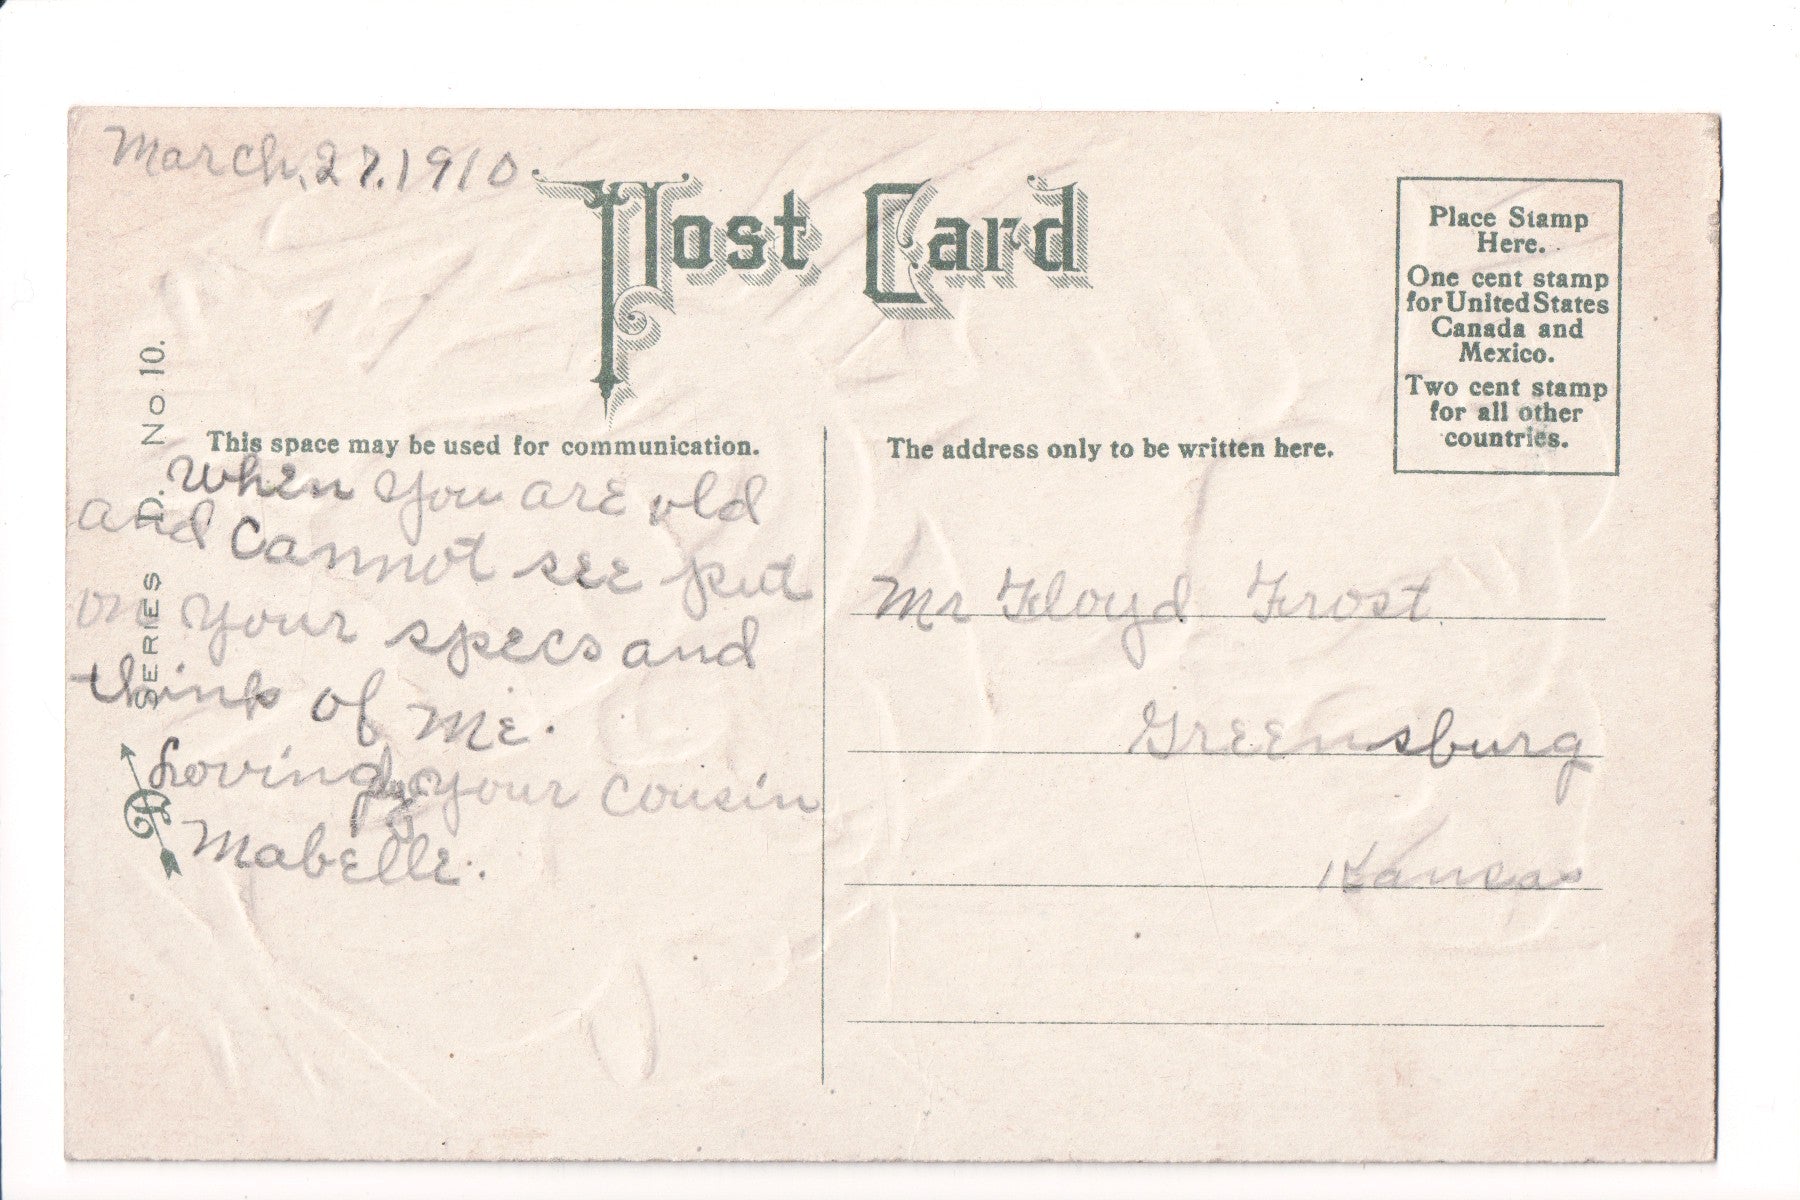 March, 27, 1910
Post Card
Place Stamp
Here.
One cent stamp
for United States
Canada and
Mexico.
Two cent stamp
for all other
countries.
SERIES D. No. 10.
This space may be used for communication.
When you are old
and cannot see put
on your specs and
think of Me.
Loving your cousin
Mabelle.
The address only to be written here.
Mr Floyd Frost
Greensburg
Kansas